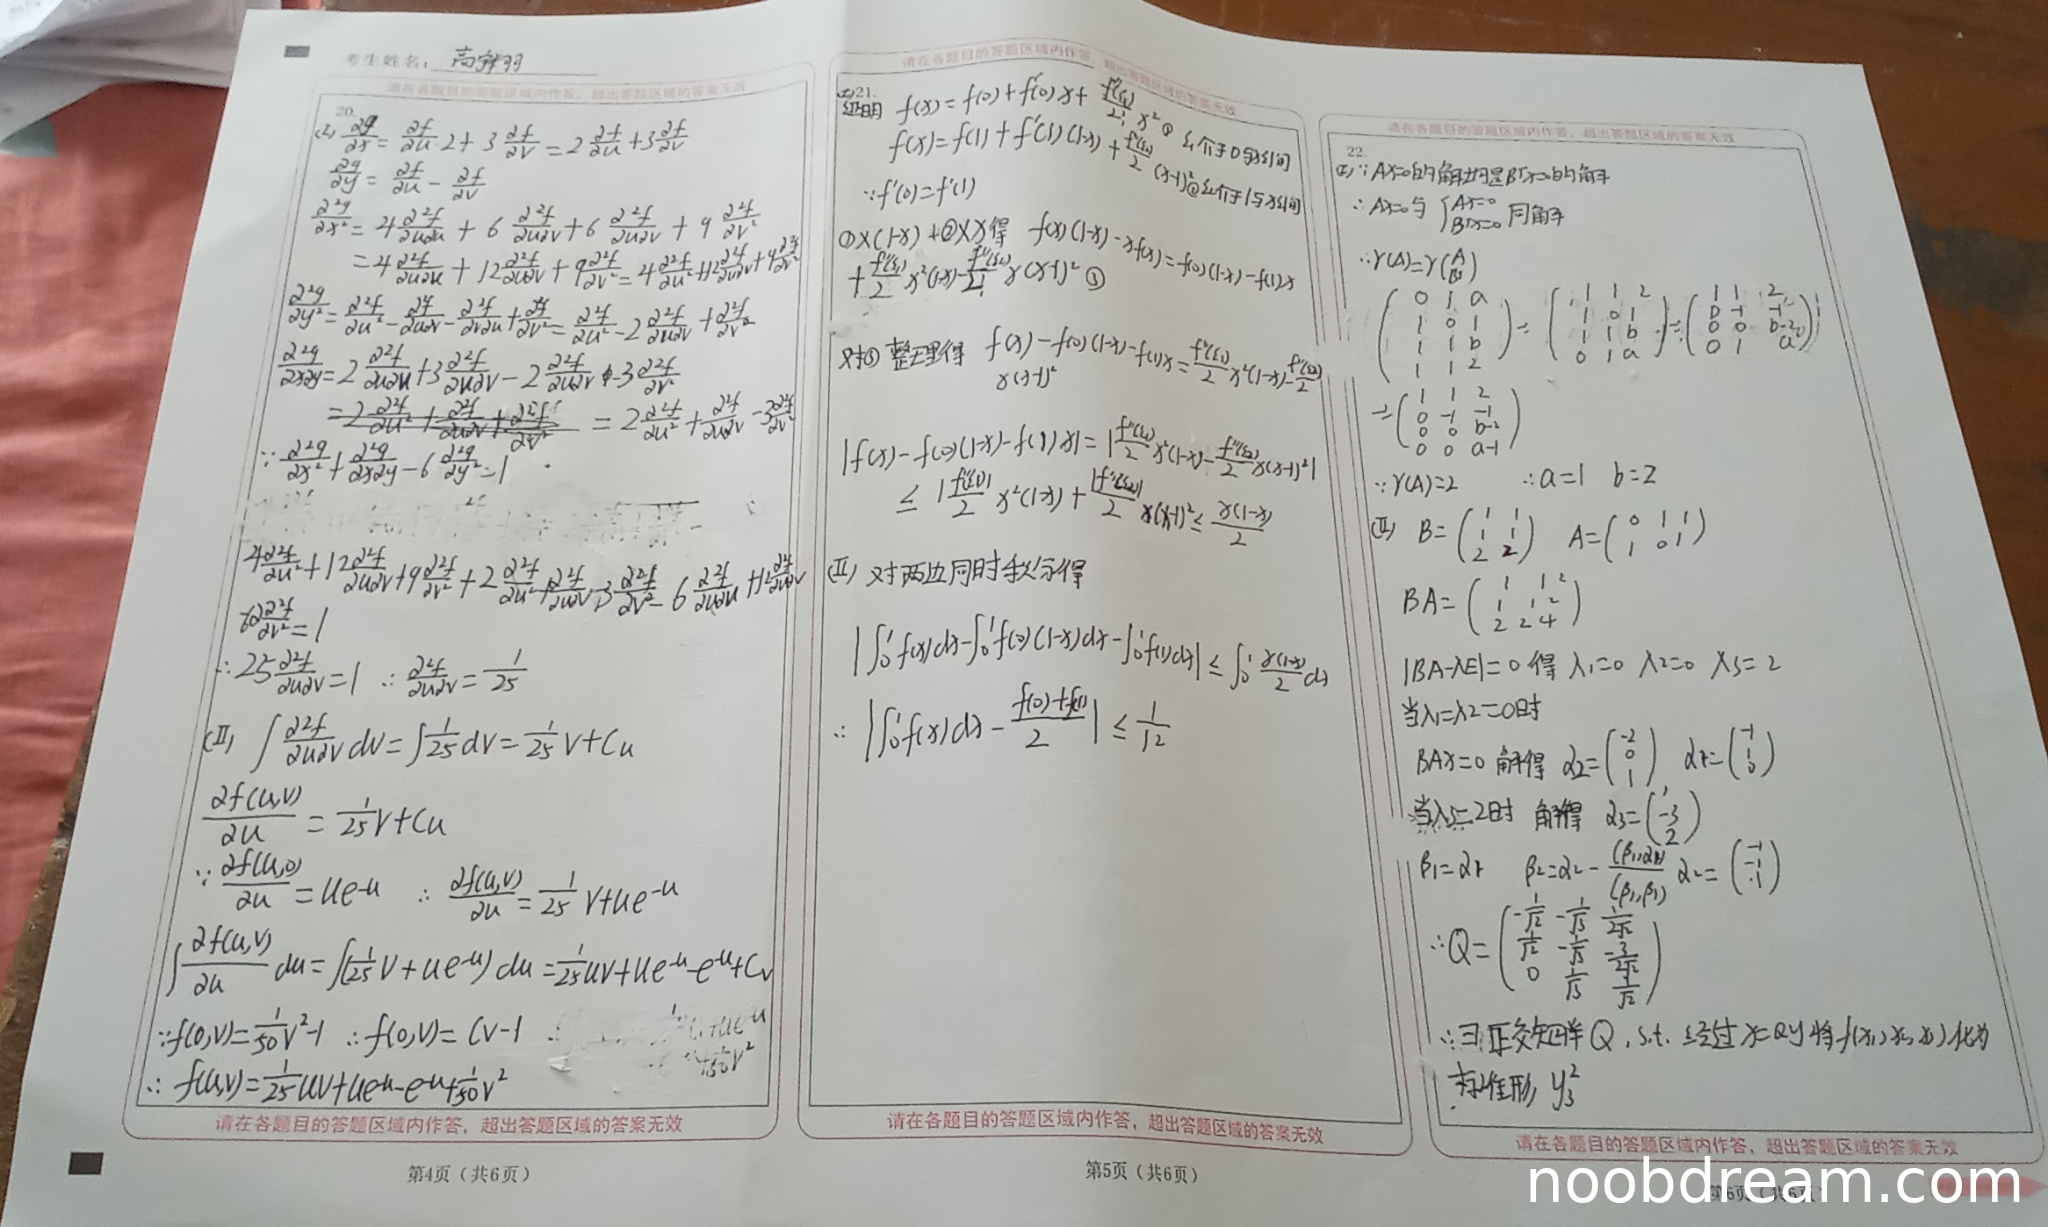 考生姓名:
请在各题目的答题区域内作答，超出答题区域的答案无效
20.
(I) ∂g/∂x = ∂f/∂u·2 + 3 ∂f/∂v = 2 ∂f/∂u + 3 ∂f/∂v
∂g/∂y = ∂f/∂u - ∂f/∂v
∂²g/∂x² = 4 ∂²f/∂u∂u + 6 ∂²f/∂u∂v + 6 ∂²f/∂u∂v + 9 ∂²f/∂v²
= 4 ∂²f/∂u∂u + 12 ∂²f/∂u∂v + 9 ∂²f/∂v² = 4 ∂²f/∂u² + 12 ∂²f/∂u∂v + 9 ∂²f/∂v²
∂²g/∂y² = ∂²f/∂u² - ∂²f/∂u∂v - ∂²f/∂v∂u + ∂²f/∂v² = ∂²f/∂u² - 2 ∂²f/∂u∂v + ∂²f/∂v²
∂²g/∂x∂y = 2 ∂²f/∂u∂u + 3 ∂²f/∂u∂v - 2 ∂²f/∂u∂v - 3 ∂²f/∂v²
= 2 ∂²f/∂u² + ∂²f/∂u∂v - 3 ∂²f/∂v²
∵ ∂²g/∂x² + ∂²g/∂x∂y - 6 ∂²g/∂y² = 1
4 ∂²f/∂u² + 12 ∂²f/∂u∂v + 9 ∂²f/∂v² + 2 ∂²f/∂u² + ∂²f/∂u∂v - 3 ∂²f/∂v² - 6 ∂²f/∂u∂u + 12 ∂²f/∂u∂v
-6 ∂²f/∂v² = 1
∴ 25 ∂²f/∂u∂v = 1 ∴ ∂²f/∂u∂v = 1/25
(II) ∫ ∂²f/∂u∂v dv = ∫ 1/25 dv = 1/25 v + Cu
∂f(u,v)/∂u = 1/25 v + Cu
∵ ∂f(u,0)/∂u = ue^-u ∴ ∂f(u,v)/∂u = 1/25 v + ue^-u
∫ ∂f(u,v)/∂u du = ∫(1/25 v + ue^-u) du = 1/25 uv + ue^-u - e^-u + Cv
∵ f(0,v) = 1/50 v² - 1 ∴ f(0,v) = Cv - 1
∴ f(u,v) = 1/25 uv + ue^-u - e^-u + 1/50 v²
请在各题目的答题区域内作答，超出答题区域的答案无效
第4页（共6页）
请在各题目的答题区域内作答，超出答题区域的答案无效
(I) 21.
证明 f(x) = f(0) + f'(0)x + f''(ξ₁)/2! x² ① ξ₁介于0与x之间
f(x) = f(1) + f'(1)(1-x) + f''(ξ₂)/2 (x-1)² ② ξ₂介于1与x之间
∵ f'(0) = f'(1)
①×(1-x) + ②×x得 f(x)(1-x) - xf(x) = f(0)(1-x) - f(1)x
+ f''(ξ₁)/2 x²(1-x) - f''(ξ₂)/2! x(x-1)² ③
对③整理得 f(x) - f(0)(1-x) - f(1)x = f''(ξ₁)/2 x²(1-x) - f''(ξ₂)/2
x(x-1)²
|f(x) - f(0)(1-x) - f(1)x| = |f''(ξ₁)/2 x²(1-x) - f''(ξ₂)/2 x(x-1)²|
≤ |f''(ξ₁)|/2 x²(1-x) + |f''(ξ₂)|/2 x(x-1)² ≤ x(1-x)/2
(II) 对两边同时积分得
|∫₀¹ f(x)dx - ∫₀¹ f(0)(1-x)dx - ∫₀¹ f(1)dx| ≤ ∫₀¹ x(1-x)/2 dx
∴ |∫₀¹ f(x)dx - (f(0)+f(1))/2| ≤ 1/12
请在各题目的答题区域内作答，超出答题区域的答案无效
第5页（共6页）
请在各题目的答题区域内作答，超出答题区域的答案无效
22.
(I) ∵ Ax=0的解均是BᵀX=0的解
∴ Ax=0与 {Ax=0 Bᵀx=0 同解
∴ r(A) = r(A Bᵀ)
(0 1 a; 1 0 1; 1 1 b; 1 1 2) → (1 1 2; 1 0 1; 1 1 b; 0 1 a) → (1 1 2; 0 -1 -1; 0 0 b-2; 0 1 a)
→ (1 1 2; 0 -1 -1; 0 0 b-2; 0 0 a-1)
∵ r(A)=2 ∴ a=1 b=2
(II) B = (1 1; 1 1; 2 2) A = (0 1 1; 1 0 1)
BA = (1 1 2; 1 1 2; 2 2 4)
|BA-λE|=0 得 λ1=0 λ2=0 λ3=2
当λ1=λ2=0时
BAx=0 解得 α2 = (-2; 0; 1) α1 = (-1; 1; 0)
当λ3=2时 解得 α3 = (1; -3; 2)
β1=α1 β2=α2 - (β1,α2)/(β1,β1) α2 = (-1; -1; -1)
∴ Q = (-1/√2 -1/√3 1/2√2; 1/√2 -1/√3 -3/2√2; 0 1/√3 1/√2)
∴ ∃正交矩阵Q, s.t. 经过x=Qy将f(x1,x2,x3)化为
标准形 y₃²
请在各题目的答题区域内作答，超出答题区域的答案无效
第6页（共6页）
noobdream.com